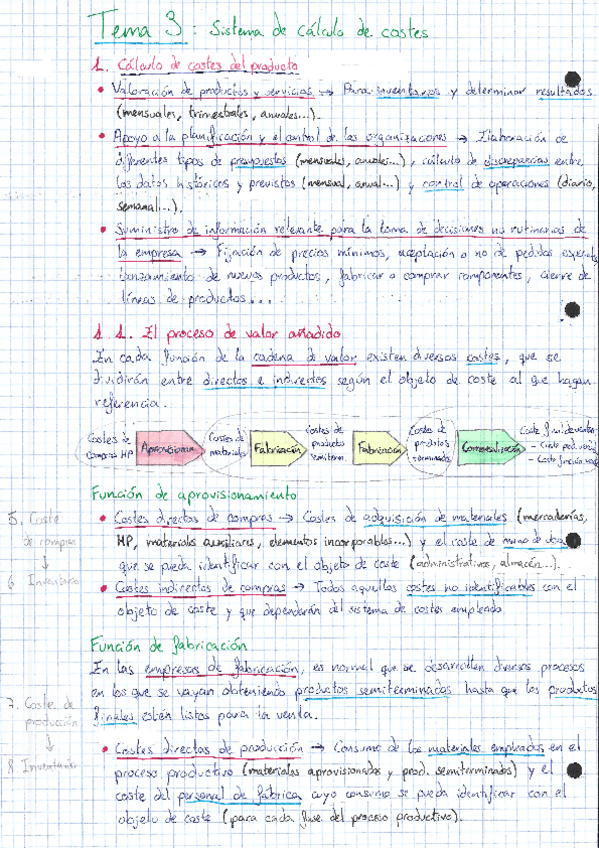 Tema 3: Sistema de cálculo de costes
1. Cálculo de costes del producto
• Valoración de productos y servicios → Para inventarios y determinar resultados
(mensuales, trimestrales, anuales...).
• Apoyo a la planificación y el control de las organizaciones → Elaboración de
diferentes tipos de presupuestos (mensuales, anuales...), cálculo de discrepancias entre
los datos históricos y previstos (mensual, anual...) y control de operaciones (diario,
semanal...).
• Suministro de información relevante para la toma de decisiones no rutinarias de
la empresa → Fijación de precios mínimos, aceptación o no de pedidos especiales,
lanzamiento de nuevos productos, fabricar o comprar componentes, cierre de
líneas de productos...
1.1. El proceso de valor añadido
En cada función de la cadena de valor existen diversos costes, que se
dividirán entre directos e indirectos según el objeto de coste al que hagan
referencia.
Costes de compras MP
Aprovisionam.
Costes de materiales
Fabricación
Costes de productos semiterm.
Fabricación
Costes de produtos terminados
Comercialización
Coste final de ventas
- Coste prod. vendida
- Coste función
Función de aprovisionamiento
• Costes directos de compras → Costes de adquisición de materiales (mercaderías,
MP, materiales auxiliares, elementos incorporables...) y el coste de mano de obra
que se pueda identificar con el objeto de coste (administrativos, almacén...).
• Costes indirectos de compras → Todos aquellos costes no identificables con el
objeto de coste y que dependerán del sistema de costes empleado.
5. Coste
de compras
↓
6 Inventario
Función de fabricación
En las empresas de fabricación, es normal que se desarrollen diversos procesos
en los que se vayan obteniendo productos semiterminados hasta que los productos
finales estén listos para la venta.
7. Coste de
producción
↓
8. Inventario
• Costes directos de producción → Consumo de los materiales empleados en el
proceso productivo (materiales aprovisionados y prod. semiterminados) y el
coste del personal de fábrica cuyo consumo se pueda identificar con el
objeto de coste (para cada fase del proceso productivo).